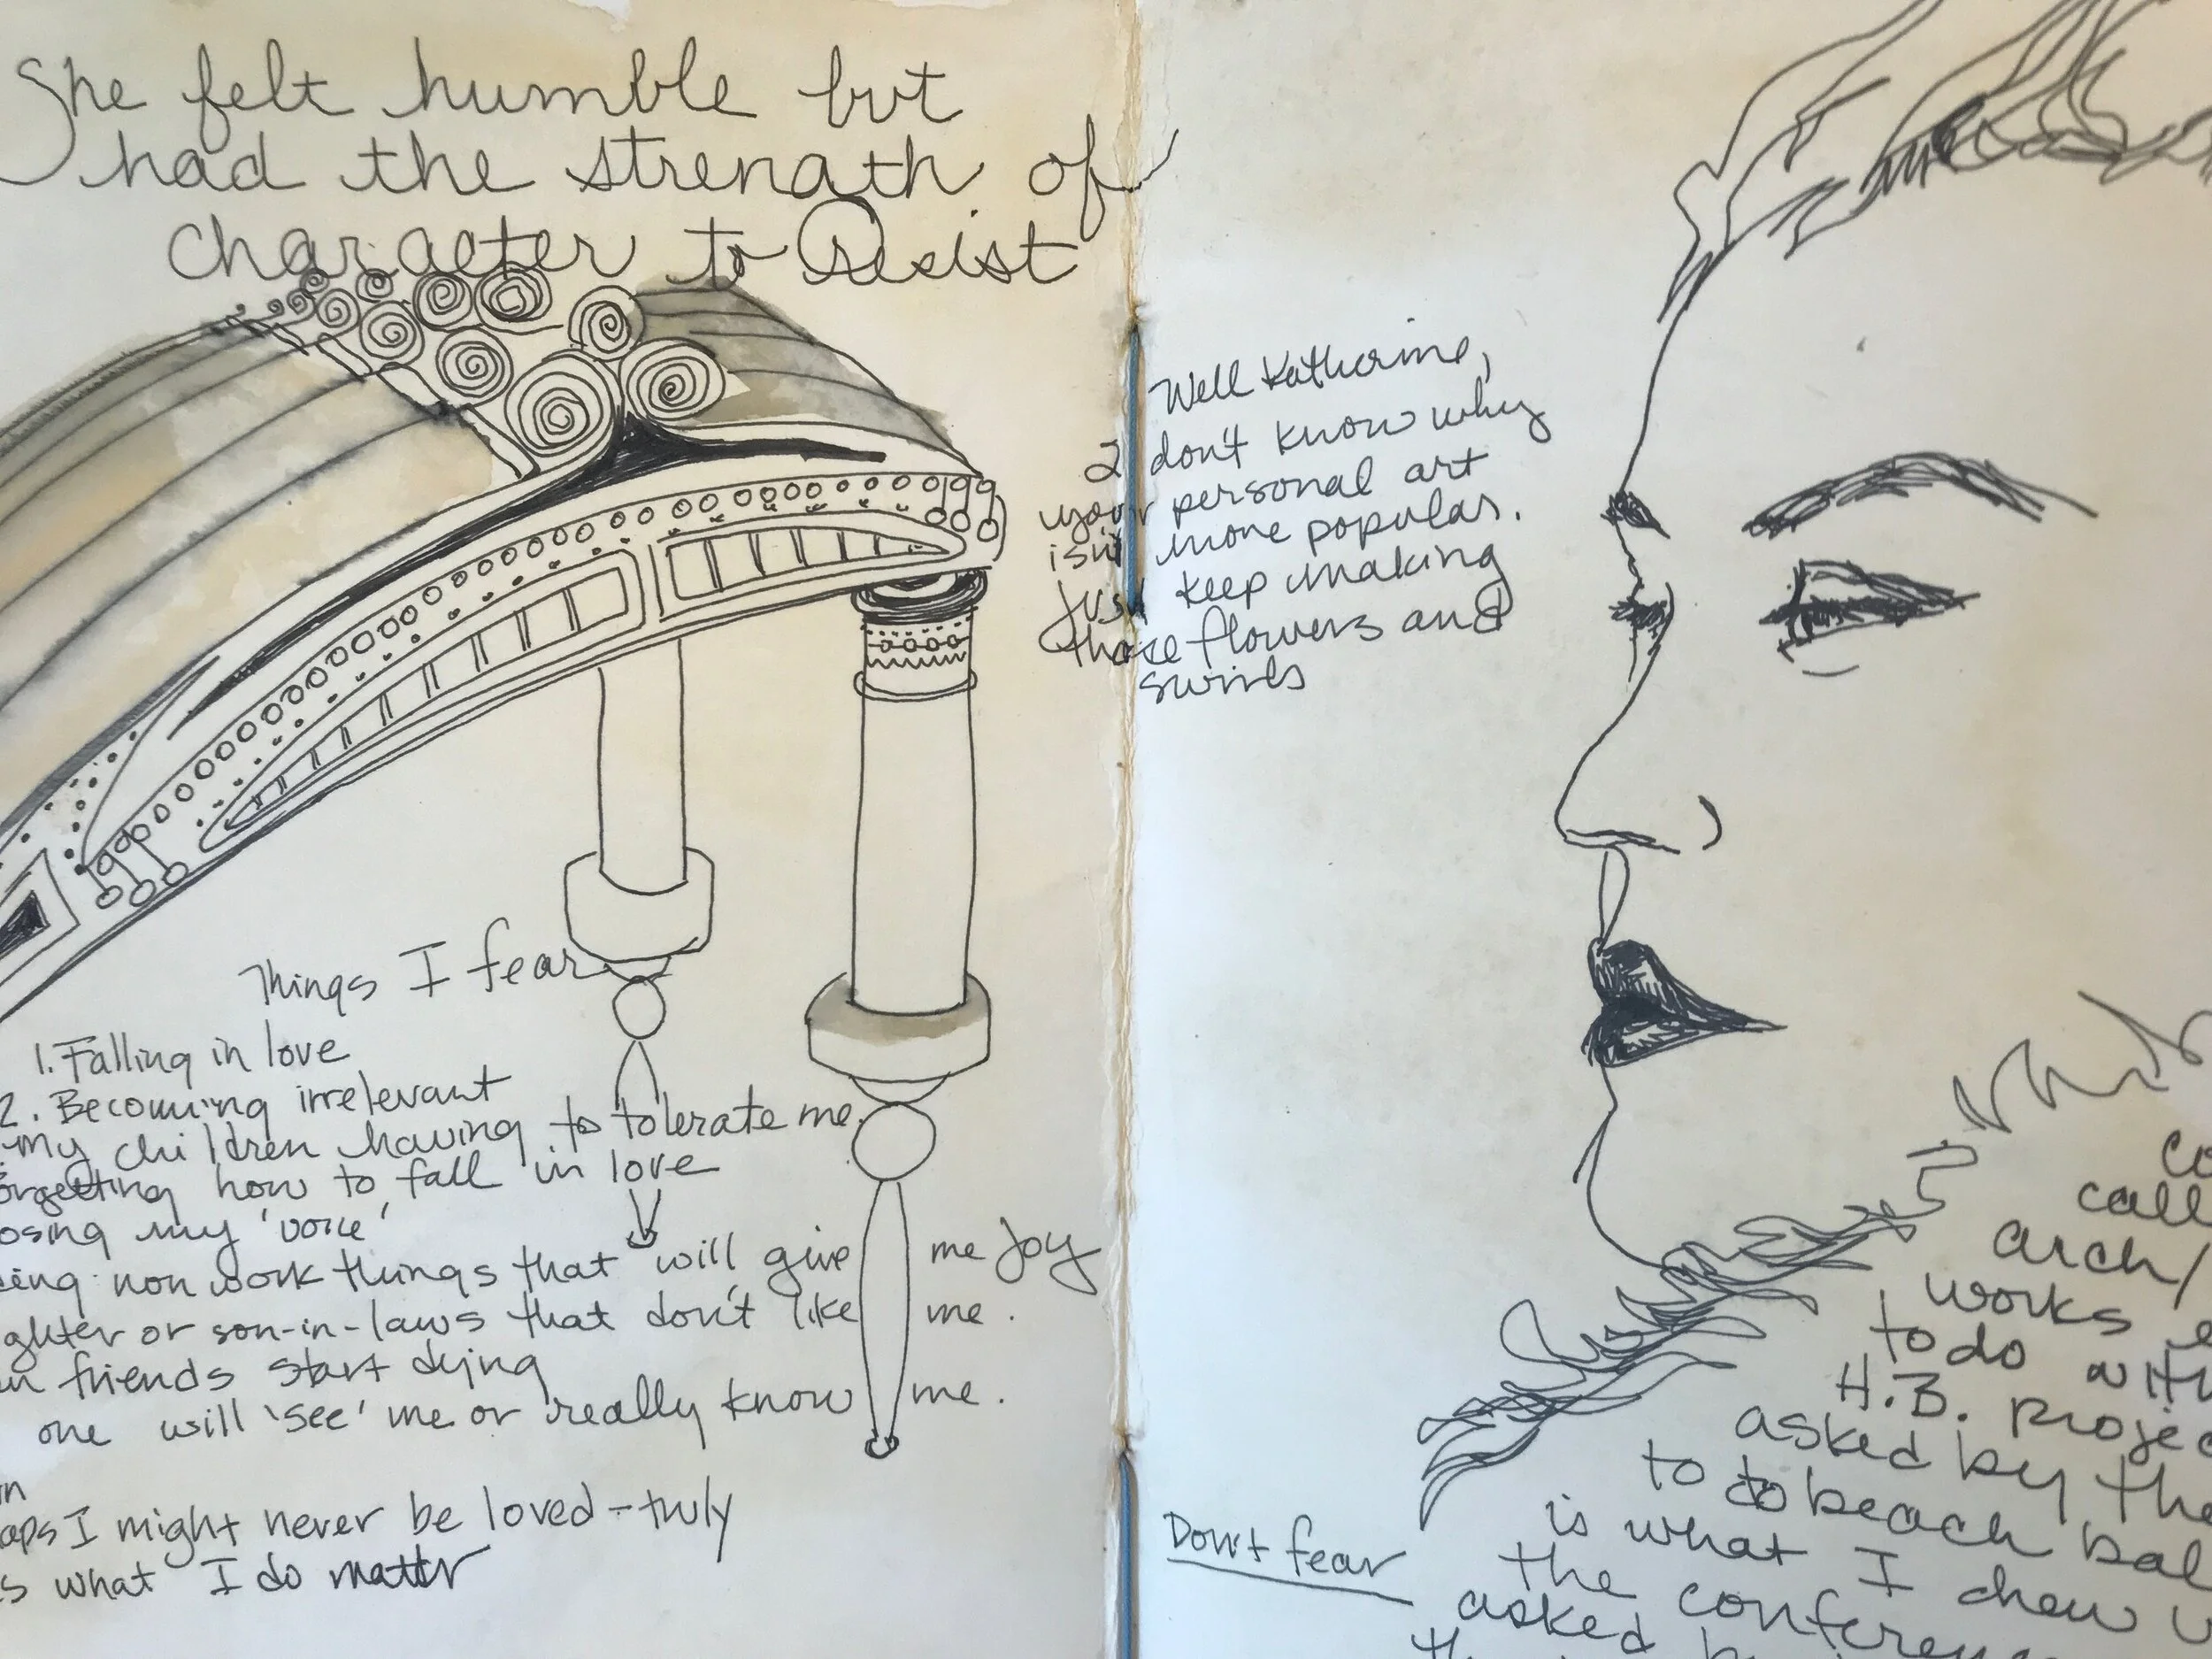 She felt humble but
had the strength of
character to Resist
Things I fear
1. Falling in love
2. Becoming irrelevant
my children having to tolerate me.
orgetting how to fall in love
osing my 'voice'
eing non work things that will give me joy
ghter or son-in-laws that don't like me.
friends start dying
one will 'see' me or really know me.
aps I might never be loved - truly
s what I do matter
Well Katherine,
I don't know why
your personal art
isn't more popular.
Just keep making
those flowers and
swirls
Don't fear
co
call
arch/
works e
to do with
H.B. Projec
asked by the
to do beach bal
is what I chew
the conferen
asked b